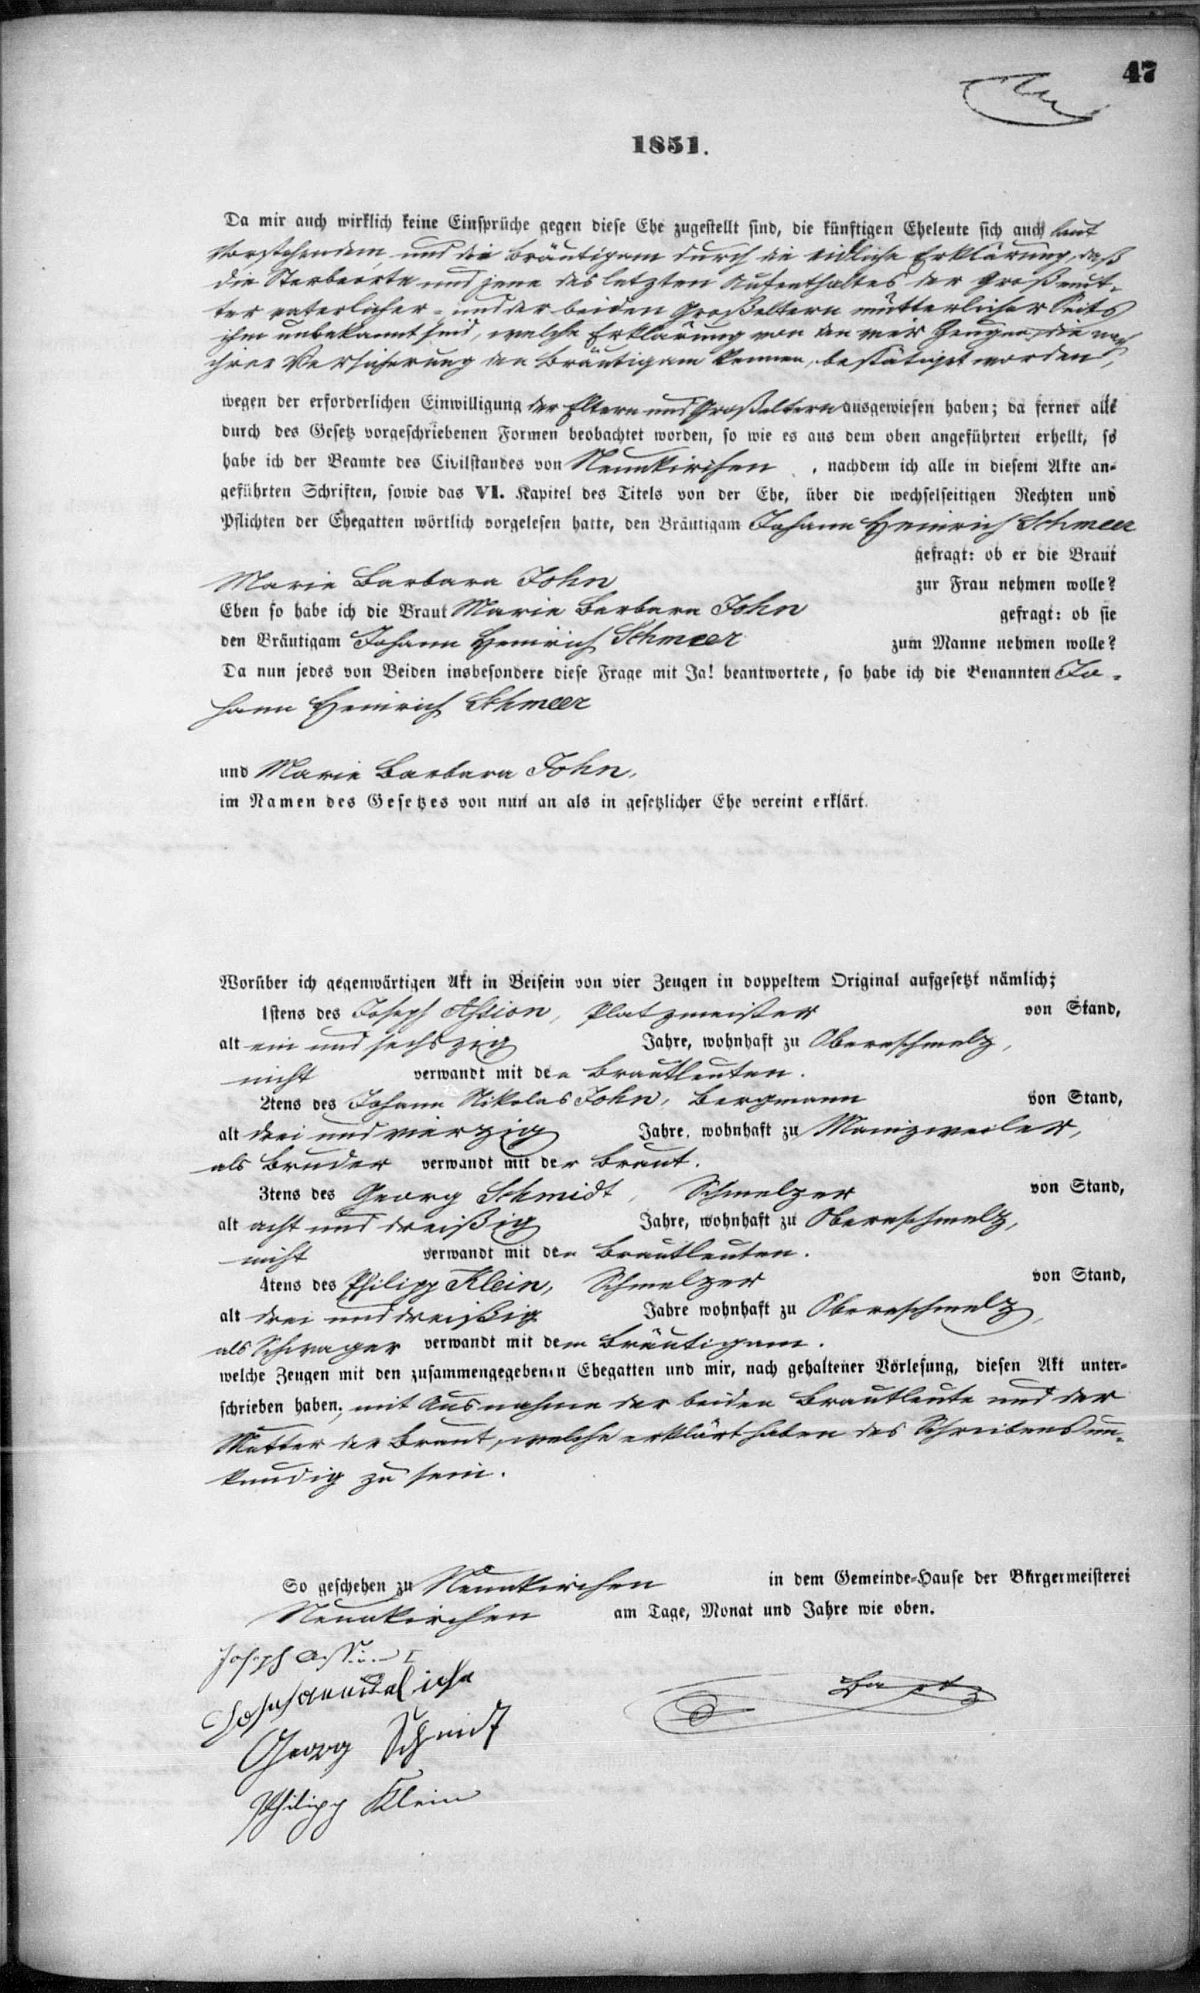 47
1851.
Da mir auch wirklich keine Einsprüche gegen diese Ehe zugestellt sind, die künftigen Eheleute sich auch laut
Vorstehendem, und der Bräutigam durch die eidliche Erklärung, daß
die Sterbeorte und jene des letzten Aufenthaltes der Großmut-
ter väterlicher- und der beiden Großeltern mütterlicher Seits
ihm unbekannt sind, welche Erklärung von den vier Zeugen, die nach
ihrer Versicherung den Bräutigam kennen, bestätiget worden,
wegen der erforderlichen Einwilligung der Eltern und Großeltern ausgewiesen haben; da ferner alle
durch des Gesetz vorgeschriebenen Formen beobachtet worden, so wie es aus dem oben angeführten erhellt, so
habe ich der Beamte des Civilstandes von Neunkirchen, nachdem ich alle in diesem Akte an-
geführten Schriften, sowie das VI. Kapitel des Titels von der Ehe, über die wechselseitigen Rechten und
Pflichten der Ehegatten wörtlich vorgelesen hatte, den Bräutigam Johann Heinrich Schmeer
gefragt: ob er die Braut
Marie Barbara John zur Frau nehmen wolle?
Eben so habe ich die Braut Marie Barbara John gefragt: ob sie
den Bräutigam Johann Heinrich Schmeer zum Manne nehmen wolle?
Da nun jedes von Beiden insbesondere diese Frage mit Ja! beantwortete, so habe ich die Benannten Jo-
hann Heinrich Schmeer
und Marie Barbara John,
im Namen des Gesetzes von nun an als in gesetzlicher Ehe vereint erklärt.
Worüber ich gegenwärtigen Akt in Beisein von vier Zeugen in doppeltem Original aufgesetzt nämlich;
1stens des Joseph Assion, Platzmeister von Stand,
alt ein und sechszig Jahre, wohnhaft zu Obernschmelz,
nicht verwandt mit den Brautleuten.
2tens des Johann Nikolas John, Bergmann von Stand,
alt drei und vierzig Jahre, wohnhaft zu Mainzweiler,
als Bruder verwandt mit der Braut.
3tens des Georg Schmidt, Schmelzer von Stand,
alt acht und dreißig Jahre, wohnhaft zu Obernschmelz,
nicht verwandt mit den Brautleuten.
4tens des Philipp Klein, Schmelzer von Stand,
alt drei und dreißig Jahre wohnhaft zu Obernschmelz,
als Schwager verwandt mit dem Bräutigam.
welche Zeugen mit den zusammengegebenen Ehegatten und mir, nach gehaltener Vorlesung, diesen Akt unter-
schrieben haben; mit Ausnahme der beiden Brautleute und der
Mutter der Braut, welche erklärt haben des Schreibens un-
kundig zu sein.
So geschehen zu Neunkirchen in dem Gemeinde-Hause der Bürgermeisterei
Neunkirchen am Tage, Monat und Jahre wie oben.
Joseph Assion
Georg Schmidt
Philipp Klein